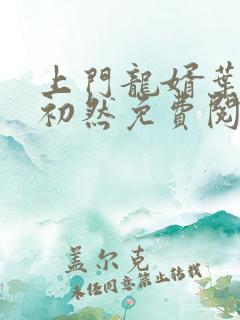 上門龍婿葉
初然免費閱
盖尔克
未经同意禁止转载